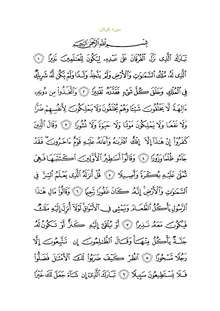 سورة الفرقان
بِسْمِ ٱللَّهِ ٱلرَّحْمَٰنِ ٱلرَّحِيمِ
تَبَارَكَ ٱلَّذِى نَزَّلَ ٱلْفُرْقَانَ عَلَىٰ عَبْدِهِۦ لِيَكُونَ لِلْعَٰلَمِينَ نَذِيرًا ١
ٱلَّذِى لَهُۥ مُلْكُ ٱلسَّمَٰوَٰتِ وَٱلْأَرْضِ وَلَمْ يَتَّخِذْ وَلَدًا وَلَمْ يَكُن لَّهُۥ شَرِيكٌ
فِى ٱلْمُلْكِ وَخَلَقَ كُلَّ شَىْءٍ فَقَدَّرَهُۥ تَقْدِيرًا ٢ وَٱتَّخَذُوا۟ مِن دُونِهِۦٓ
ءَالِهَةً لَّا يَخْلُقُونَ شَيْـًٔا وَهُمْ يُخْلَقُونَ وَلَا يَمْلِكُونَ لِأَنفُسِهِمْ ضَرًّا
وَلَا نَفْعًا وَلَا يَمْلِكُونَ مَوْتًا وَلَا حَيَوٰةً وَلَا نُشُورًا ٣ وَقَالَ ٱلَّذِينَ
كَفَرُوٓا۟ إِنْ هَٰذَآ إِلَّآ إِفْكٌ ٱفْتَرَىٰهُ وَأَعَانَهُۥ عَلَيْهِ قَوْمٌ ءَاخَرُونَ فَقَدْ
جَآءُو ظُلْمًا وَزُورًا ٤ وَقَالُوٓا۟ أَسَٰطِيرُ ٱلْأَوَّلِينَ ٱكْتَتَبَهَا فَهِىَ
تُمْلَىٰ عَلَيْهِ بُكْرَةً وَأَصِيلًا ٥ قُلْ أَنزَلَهُ ٱلَّذِى يَعْلَمُ ٱلسِّرَّ فِى
ٱلسَّمَٰوَٰتِ وَٱلْأَرْضِ إِنَّهُۥ كَانَ غَفُورًا رَّحِيمًا ٦ وَقَالُوا۟ مَالِ هَٰذَا
ٱلرَّسُولِ يَأْكُلُ ٱلطَّعَامَ وَيَمْشِى فِى ٱلْأَسْوَاقِ لَوْلَآ أُنزِلَ إِلَيْهِ مَلَكٌ
فَيَكُونَ مَعَهُۥ نَذِيرًا ٧ أَوْ يُلْقَىٰٓ إِلَيْهِ كَنزٌ أَوْ تَكُونُ لَهُۥ
جَنَّةٌ يَأْكُلُ مِنْهَا وَقَالَ ٱلظَّٰلِمُونَ إِن تَتَّبِعُونَ إِلَّا
رَجُلًا مَّسْحُورًا ٨ ٱنظُرْ كَيْفَ ضَرَبُوا۟ لَكَ ٱلْأَمْثَٰلَ فَضَلُّوا۟
فَلَا يَسْتَطِيعُونَ سَبِيلًا ٩ تَبَارَكَ ٱلَّذِىٓ إِن شَآءَ جَعَلَ لَكَ خَيْرًا